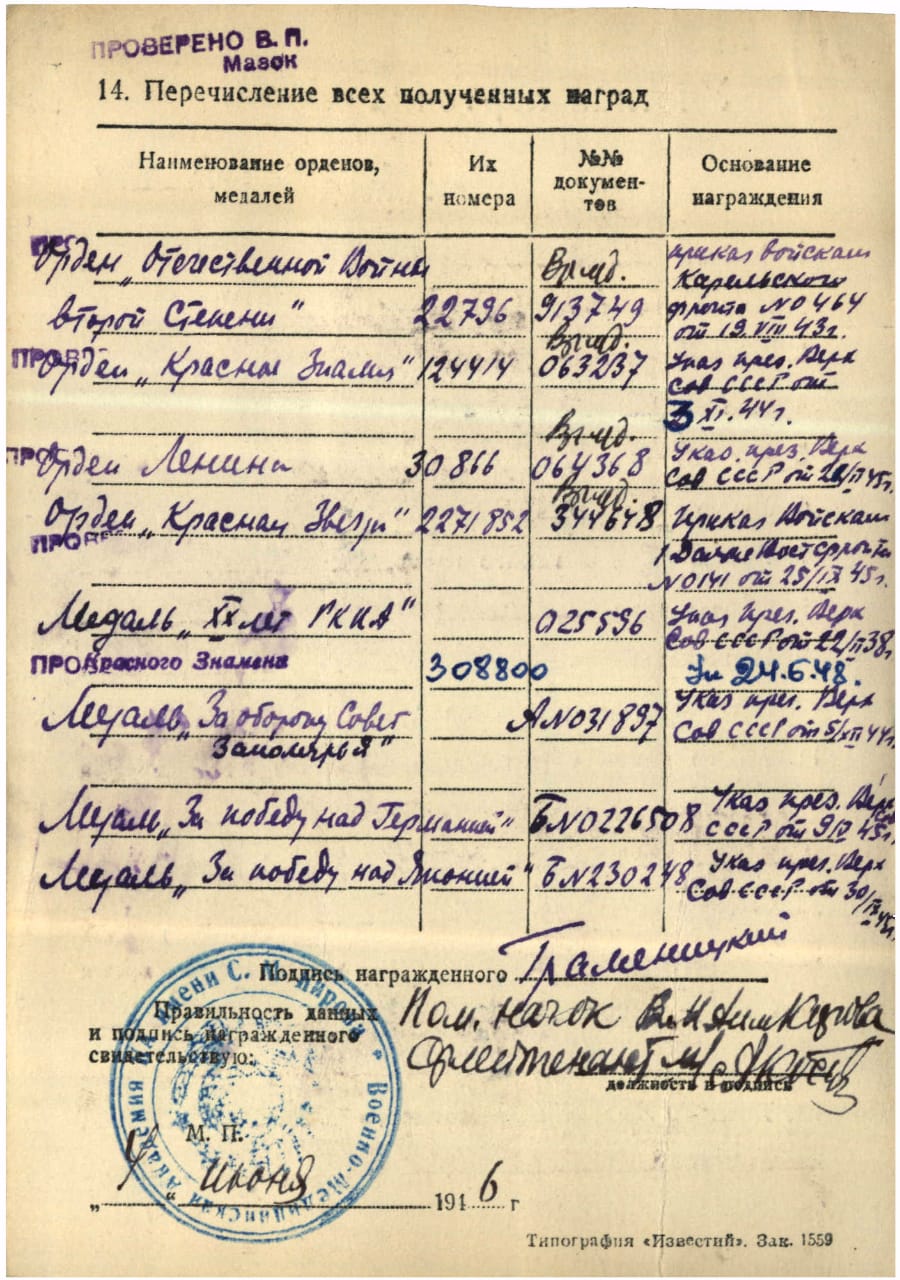 ПРОВЕРЕНО В. П.
Мазок
14. Перечисление всех полученных наград
Наименование орденов, медалей
Их номера
№№ документов
Основание награждения
Орден „Отечественной Войны
второй Степени"
22796
Вр. уд.
913749
приказ войскам
Карельского
фронта №0464
от 19.VIII 43г.
Орден „Красное Знамя"
124414
Вр. уд.
063237
Указ През. Верх
Сов СССР от
3 XI. 44г.
Орден Ленина
30866
Вр. уд.
064368
Указ. през. Верх
Сов СССР от
Орден „Красная Звезда"
2271852
Вр. уд.
344648
Приказ Войскам
1 Дальневост фронта
№0141 от 25/IX 45г.
Медаль „XX лет РККА"
025596
Указ През. Верх
Сов СССР от 22/II 38г
Красного Знамени
308800
Ук 24.6.48.
Медаль „За оборону Совет
Заполярья"
А№031897
Указ през. Верх
Сов СССР от 5/XII 44г
Медаль „За победу над Германией"
Б№0226508
Указ през. Верх
СССР от 9/V 45г.
Медаль „За победу над Японией"
Б№230248
Указ през. Верх
Сов СССР от 30/IX 45г.
Подпись награжденного Граменицкий
Правильность данных
и подпись награжденного
свидетельствую:
Пом. нач ОК ВМА им Кирова
лейтенант м/с
должность и подпись
Военно-Медицинская Академия имени С. М. Кирова
М. П.
„4" июня 1946 г
Типография «Известий». Зак. 1559